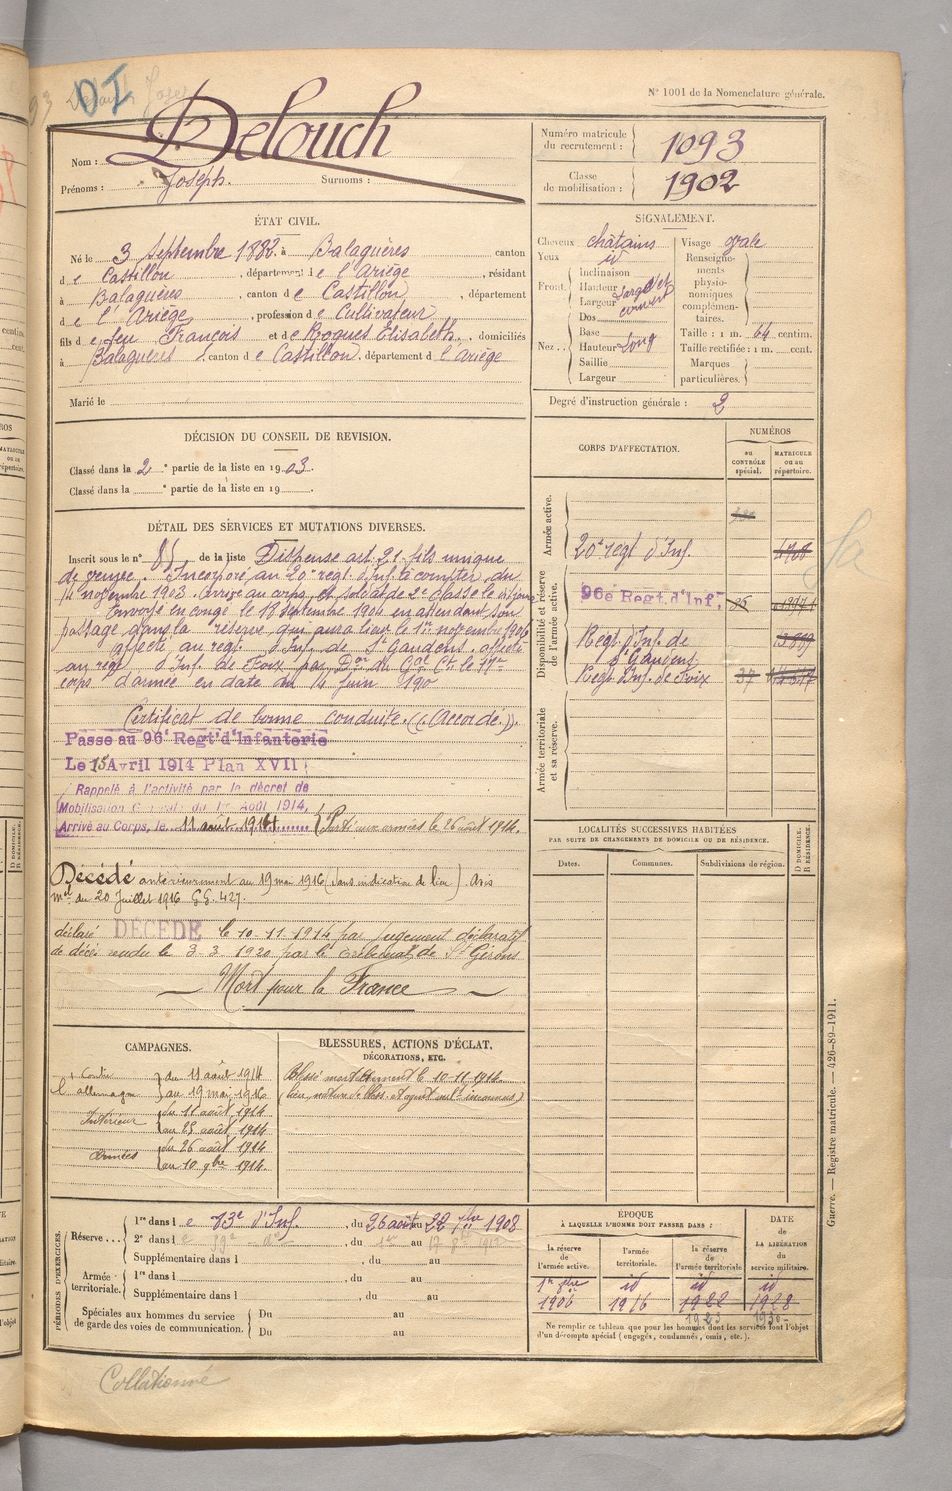 DI
N° 1001 de la Nomenclature générale.
Nom : Delouch
Prénoms : Joseph. Surnoms :
Numéro matricule du recrutement : 1093
Classe de mobilisation : 1902
ÉTAT CIVIL.
Né le 3 Septembre 1882. à Balaguères canton
de Castillon, département de l'Ariège, résidant
à Balaguères, canton de Castillon, département
de l'Ariège, profession de Cultivateur
fils de feu François et de Rogues Elisabeth, domiciliés
à Balaguères, canton de Castillon, département de l'Ariège
Marié le
SIGNALEMENT.
Cheveux châtains Visage ovale
Yeux id Renseigne-
Inclinaison ments
Front. Hauteur large et physio-
Largeur couvert nomiques
Dos complémen-
Base taires.
Nez.. Hauteur Long Taille : 1 m. 64 centim.
Saillie Taille rectifiée : 1 m. cent.
Largeur Marques particulières.
Degré d'instruction générale : 2
DÉCISION DU CONSEIL DE REVISION.
Classé dans la 2e partie de la liste en 1903.
Classé dans la e partie de la liste en 19 .
DÉTAIL DES SERVICES ET MUTATIONS DIVERSES.
Inscrit sous le n° 85 de la liste Dispense art. 21 fils unique
de veuve. Incorporé au 20e regt d'Inf. à compter du
14 novembre 1903. Arrivé au corps et soldat de 2e classe le dit jour
Envoyé en congé le 18 septembre 1904 en attendant son
passage dans la réserve qui aura lieu le 1er novembre 1906
affecté au regt d'Inf. de St Gaudens. affecté
au regt d'Inf. de Foix par Don du Gal Ct le 17me
corps d'armée en date du 14 juin 190
Certificat de bonne conduite. (Accordé).
Passé au 96e Regt d'Infanterie
Le 15 Avril 1914 Plan XVII
Rappelé à l'activité par le décret de
Mobilisation Générale du 1er Août 1914,
Arrivé au Corps, le 11 août 1914 Parti aux armées le 26 août 1914.
Décédé antérieurement au 19 mai 1916 (sans indication de lieu). Avis
mel du 20 Juillet 1916 GG. 427.
déclaré DÉCÉDÉ le 10-11-1914 par jugement déclaratif
de décès rendu le 3-3-1920 par le tribunal de St Girons
Mort pour la France
CORPS D'AFFECTATION.
NUMÉROS
au CONTRÔLE spécial.
MATRICULE ou au répertoire.
Armée active.
20e regt d'Inf.
Disponibilité et réserve de l'armée active.
96e Regt. d'Inf.
Regt d'Inf. de
St Gaudens
Regt d'Inf. de Foix
Armée territoriale et sa réserve.
LOCALITÉS SUCCESSIVES HABITÉES
PAR SUITE DE CHANGEMENTS DE DOMICILE OU DE RÉSIDENCE.
Dates. Communes. Subdivisions de région.
D DOMICILE. R RÉSIDENCE.
CAMPAGNES.
Contre l'allemagne du 11 août 1914
au 19 mai 1916
Intérieur du 11 août 1914
au 25 août 1914
armées du 26 août 1914
au 10 9bre 1914.
BLESSURES, ACTIONS D'ÉCLAT,
DÉCORATIONS, ETC.
Blessé mortellement le 10-11-1914
PÉRIODES D'EXERCICES.
Réserve... 1re dans le 73e d'Inf., du 26 août au 22 7bre 1908
2e dans le 59e do du 1er au 17 8bre 1912
Supplémentaire dans l , du au
Armée territoriale. 1re dans l , du au
Supplémentaire dans l , du au
Spéciales aux hommes du service de garde des voies de communication. Du au
Du au
ÉPOQUE
À LAQUELLE L'HOMME DOIT PASSER DANS :
la réserve de l'armée active. l'armée territoriale. la réserve de l'armée territoriale
DATE DE LA LIBÉRATION du service militaire.
1er 9bre id id id
1906 1916 1922 1928
1923 1930
Ne remplir ce tableau que pour les hommes dont les services font l'objet
d'un décompte spécial (engagés, condamnés, omis, etc.).
Guerre. — Registre matricule. — 426-89-1911.
Collationné